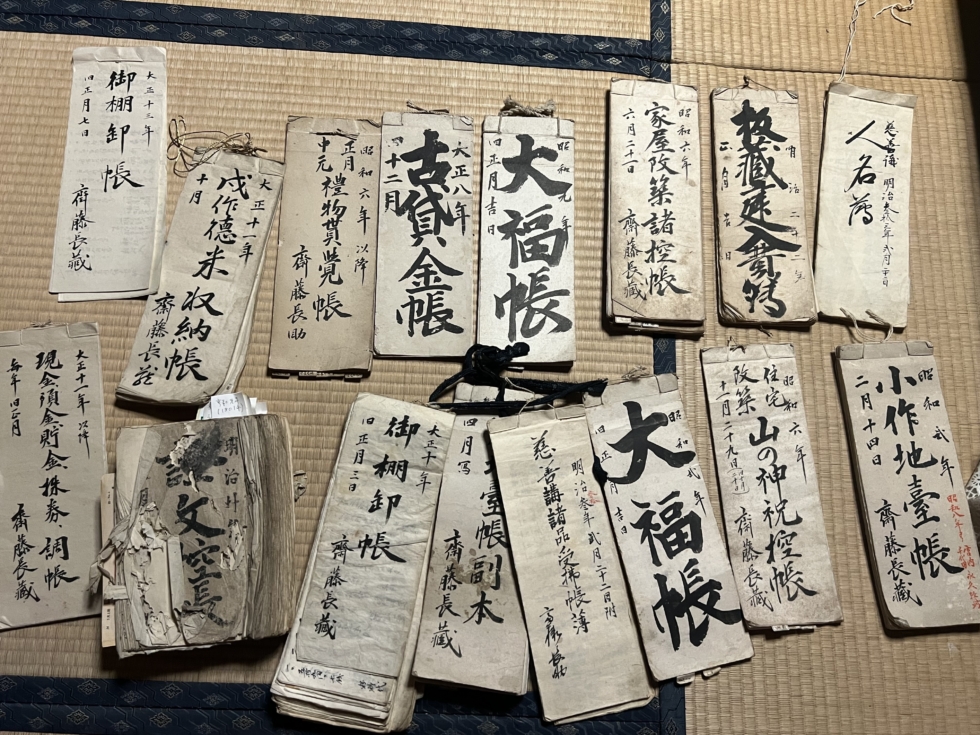 大正十三年
御棚卸帳
旧正月七日
齊藤長藏
大正十一年
成作德米収納帳
十月
齋藤長藏
昭和六年以降
正月
中元
禮物貰覺帳
齋藤長助
大正八年
古貸金帳
旧十二月
昭和元年
大福帳
旧正月吉日
昭和六年
家屋改築諸控帳
六月二十一日
齋藤長藏
明治二十二年
板藏
正月吉日
慈善講
明治
人名簿
大正十一年以降
現金、預金、貯金、株券、調帳
毎年旧正月
齋藤長藏
明治廾
大正十年
御棚卸帳
旧正月三日
齋藤長藏
臺帳副本
四月写
齋藤長藏
明治参年弐月二十一日附
慈善講諸品受拂帳簿
昭和弐年
大福帳
旧正月吉日
昭和六年
住宅
改築
山の神祝控帳
十一月二十九日
齋藤長藏
昭和弐年
小作地臺帳
二月十四日
齋藤長藏